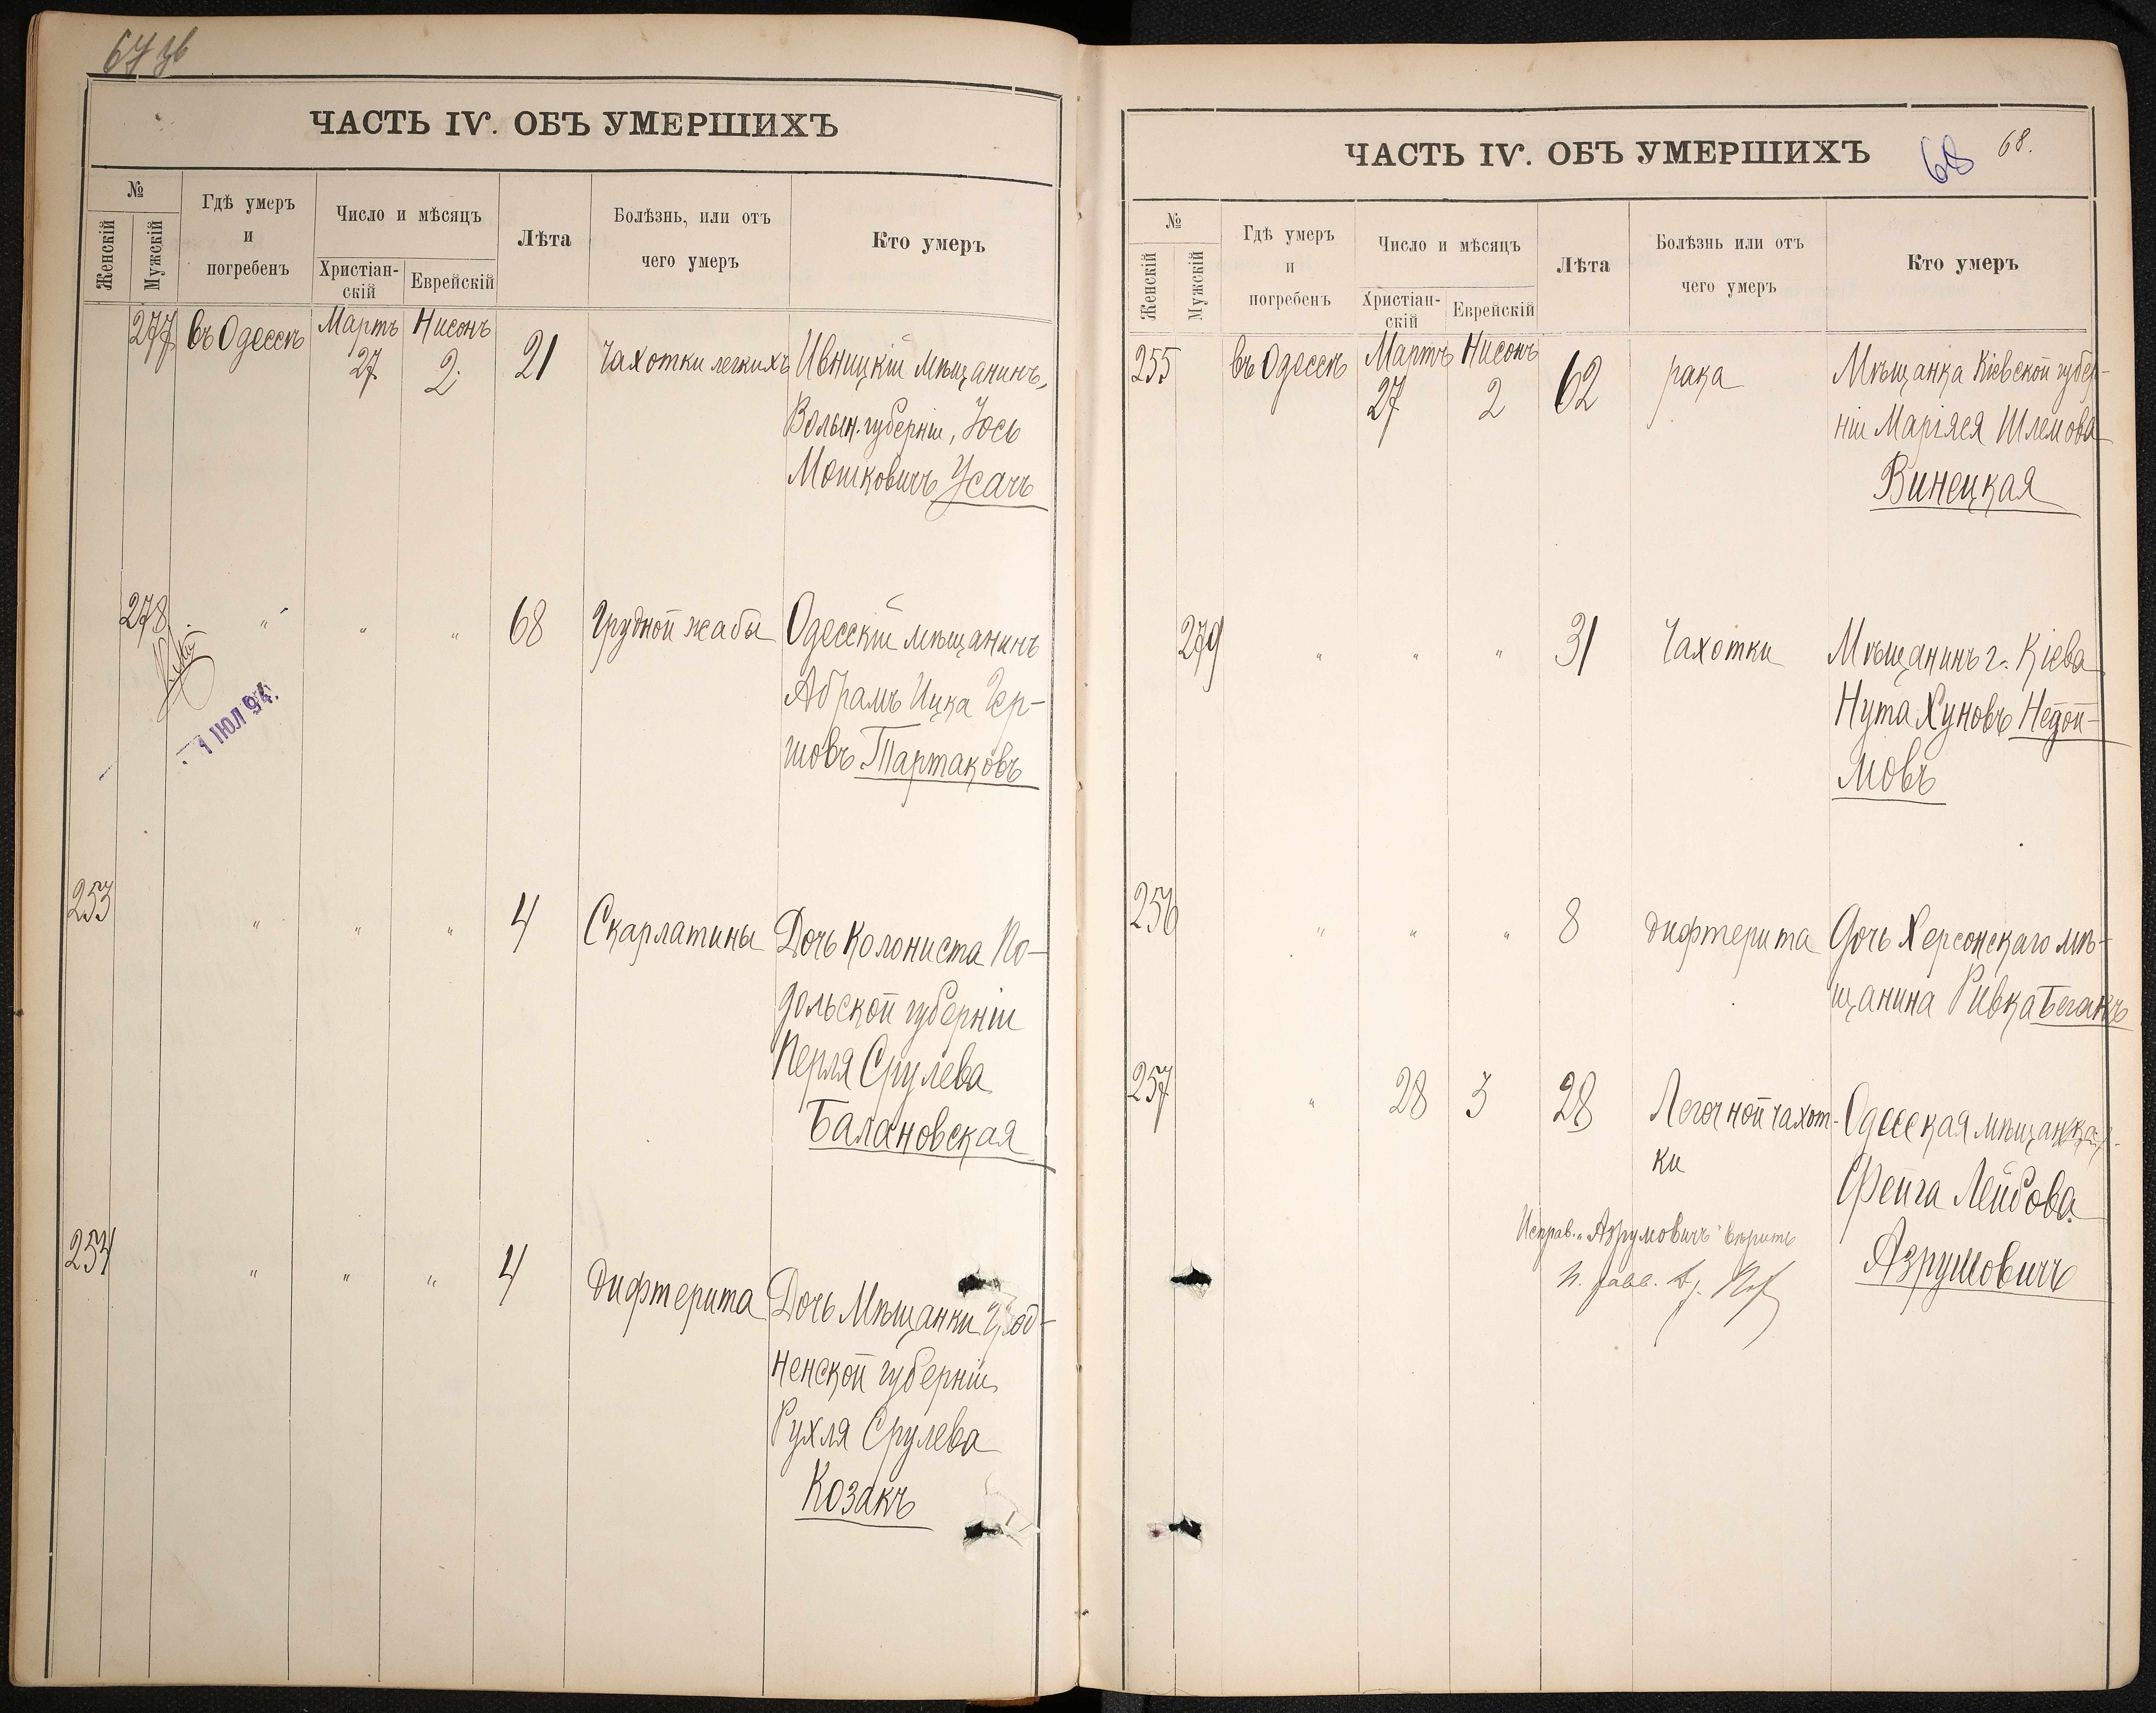 67 зв
ЧАСТЬ IV. ОБЪ УМЕРШИХЪ
№
Женскій
Мужскій
Гдѣ умеръ
и
погребенъ
Число и мѣсяцъ
Христіан-
скій
Еврейскій
Лѣта
Болѣзнь, или отъ
чего умеръ
Кто умеръ
277 въ Одессѣ Мартъ 27 Нисонъ 2. 21 Чахотки легкихъ Ивницкій мѣщанинъ,
Волын. губерніи, Іось
Мошковичъ Усачъ
278 " " " 68 Грудной жабы Одесскій мѣщанинъ
Абрамъ Ицка Гер-
шовъ Тартаковъ
1 ІЮЛ 94.
253 " " " 4 Скарлатины Дочь Колониста По-
дольской губерніи
Перля Срулева
Балановская
254 " " " 4 дифтерита Дочь Мѣщанки Грод-
ненской губерніи
Рухля Срулева
Козакъ
ЧАСТЬ IV. ОБЪ УМЕРШИХЪ
68 68.
№
Женскій
Мужскій
Гдѣ умеръ
и
погребенъ
Число и мѣсяцъ
Христіан-
скій
Еврейскій
Лѣта
Болѣзнь или отъ
чего умеръ
Кто умеръ
255 въ Одессѣ Мартъ 27 Нисонъ 2 62 рака Мѣщанка Кіевской губер-
ніи Маріяся Шлемова
Винецкая
279 " " " 31 Чахотки Мѣщанинъ г. Кіева
Нута Хуновъ Недой-
мовъ
256 " " " 8 дифтерита Дочь Херсонскаго мѣ-
щанина Ривка Беганъ
257 " 28 3 28 Легочной чахот- Одесская мѣщанка
ки
Фейга Лейбова
Азрумовичъ
Исправ. "Азрумовичъ" вѣрить